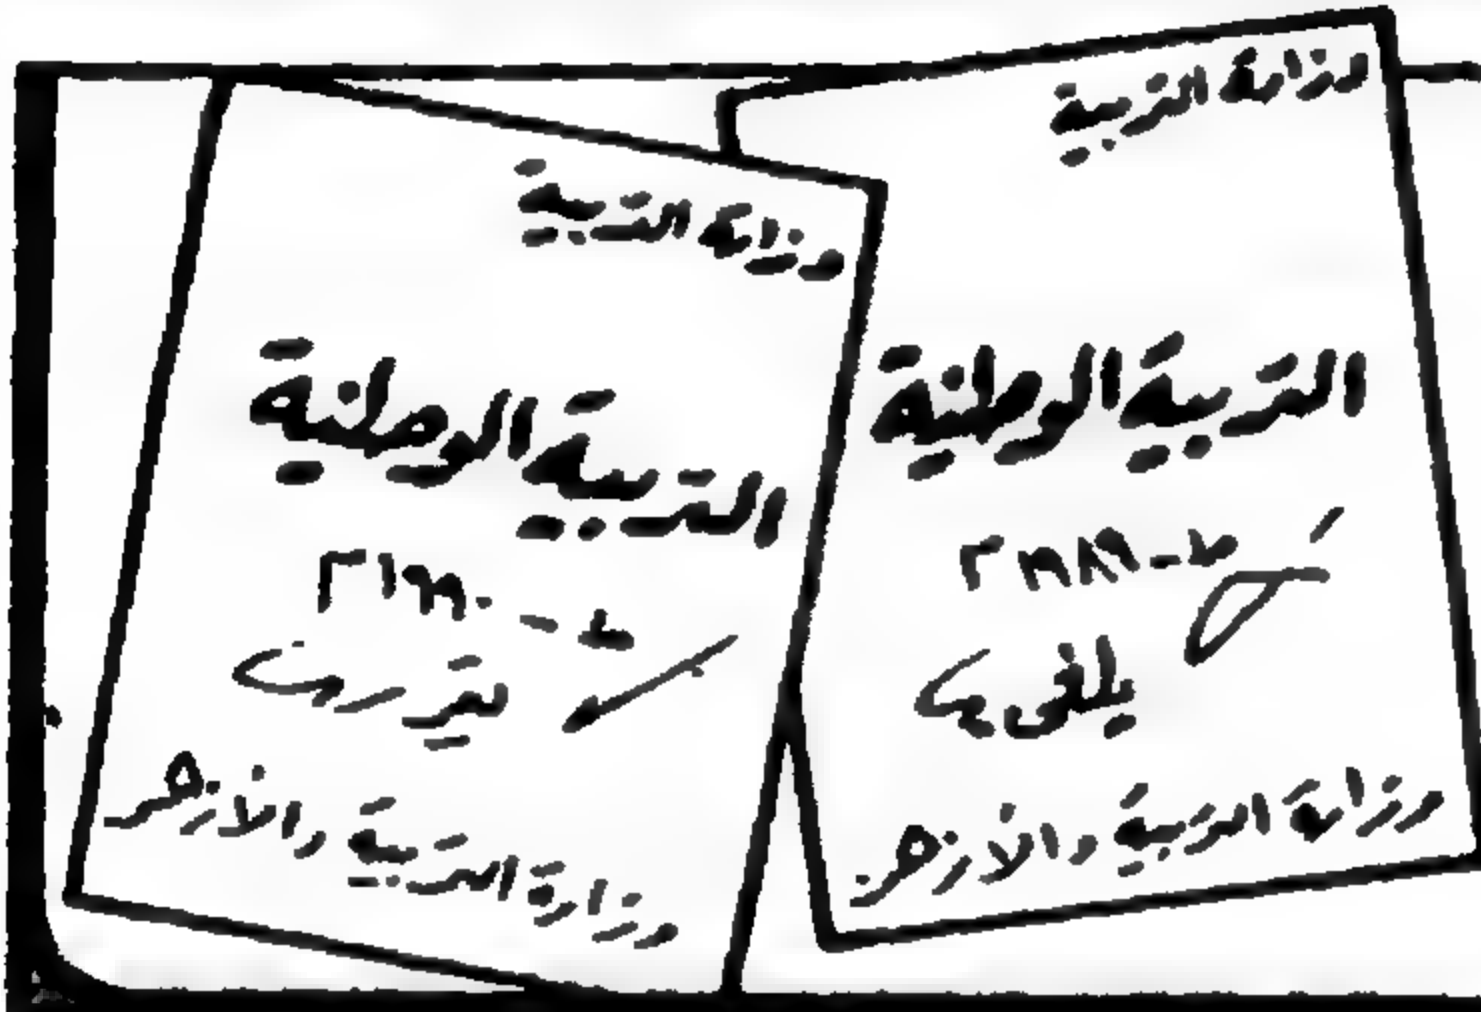 وزارة التربية
التربية الوطنية
ط - ١٩٨٩ م
يلغى
وزارة التربية والأزهر
وزارة التربية
التربية الوطنية
ط - ١٩٩٠ م
وزارة التربية والأزهر